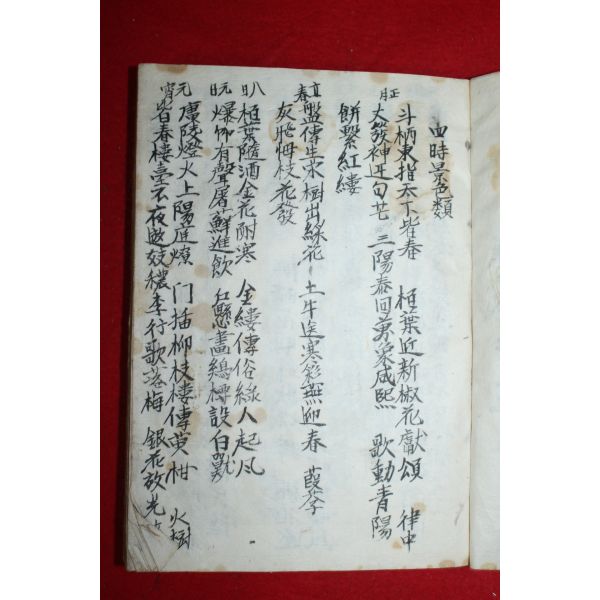 四時景色類
正月
斗柄東指天下皆春 栢葉近新椒花獻頌 律中
太簇神正句芒 三陽泰回萬象咸熙 歌動青陽
餠繫紅縷
立春
盤傳生菜樹出綵花 土牛送寒彩燕迎春 葭莩
灰飛梅枝花發
人日
栢葉隨酒金花耐寒 金縷傳俗綵人起風
元日
爆竹有聲屠蘇進飮 懸畵鷄樽設白獸
元宵
廣陵燈火上陽庭燎 门插柳枝樓傳黃柑 火樹
皆春樓臺不夜遊妓穠李行歌落梅 銀花放光